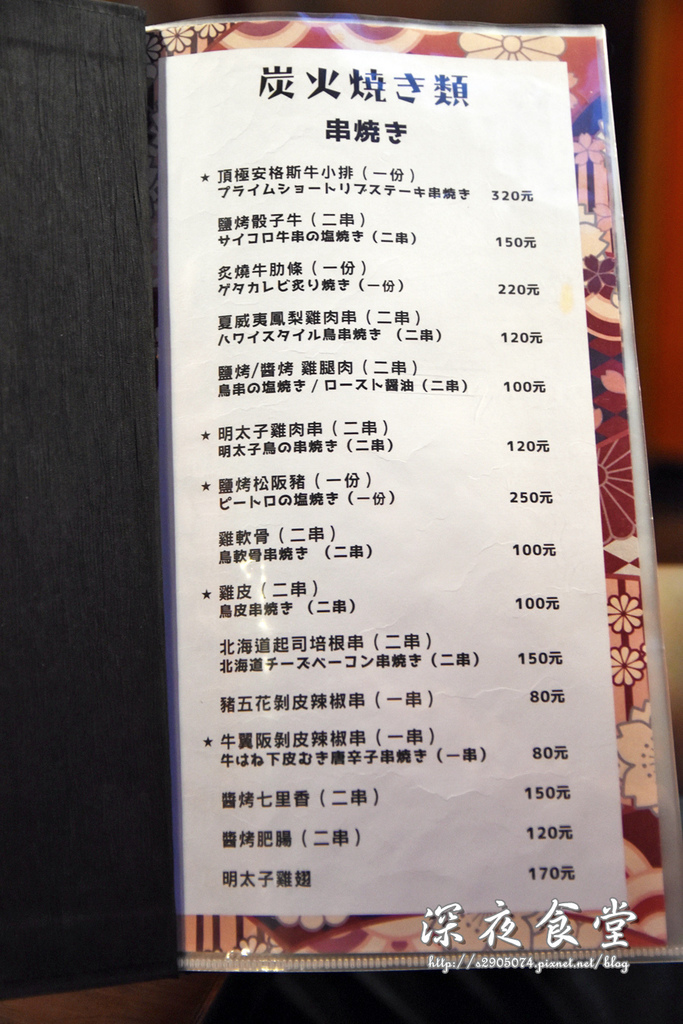 炭火焼き類
串焼き
★ 頂極安格斯牛小排（一份）
プライムショートリブステーキ串焼き 320元
鹽烤骰子牛（二串）
サイコロ牛串の塩焼き（二串） 150元
炙燒牛肋條（一份）
ゲタカルビ炙り焼き（一份） 220元
夏威夷鳳梨雞肉串（二串）
ハワイスタイル鳥串焼き （二串） 120元
鹽烤/醬烤 雞腿肉（二串）
鳥串の塩焼き / ロースト醤油（二串） 100元
★ 明太子雞肉串（二串）
明太子鳥の串焼き（二串） 120元
★ 鹽烤松阪豬（一份）
ピートロの塩焼き（一份） 250元
雞軟骨（二串）
鳥軟骨串焼き （二串） 100元
★ 雞皮（二串）
鳥皮串焼き （二串） 100元
北海道起司培根串（二串）
北海道チーズベーコン串焼き（二串） 150元
豬五花剝皮辣椒串（一串） 80元
★ 牛翼阪剝皮辣椒串（一串）
牛はね下皮むき唐辛子串焼き（一串） 80元
醬烤七里香（二串） 150元
醬烤肥腸（二串） 120元
明太子雞翅 170元
深夜食堂
http://a2905074.pixnet.net/blog